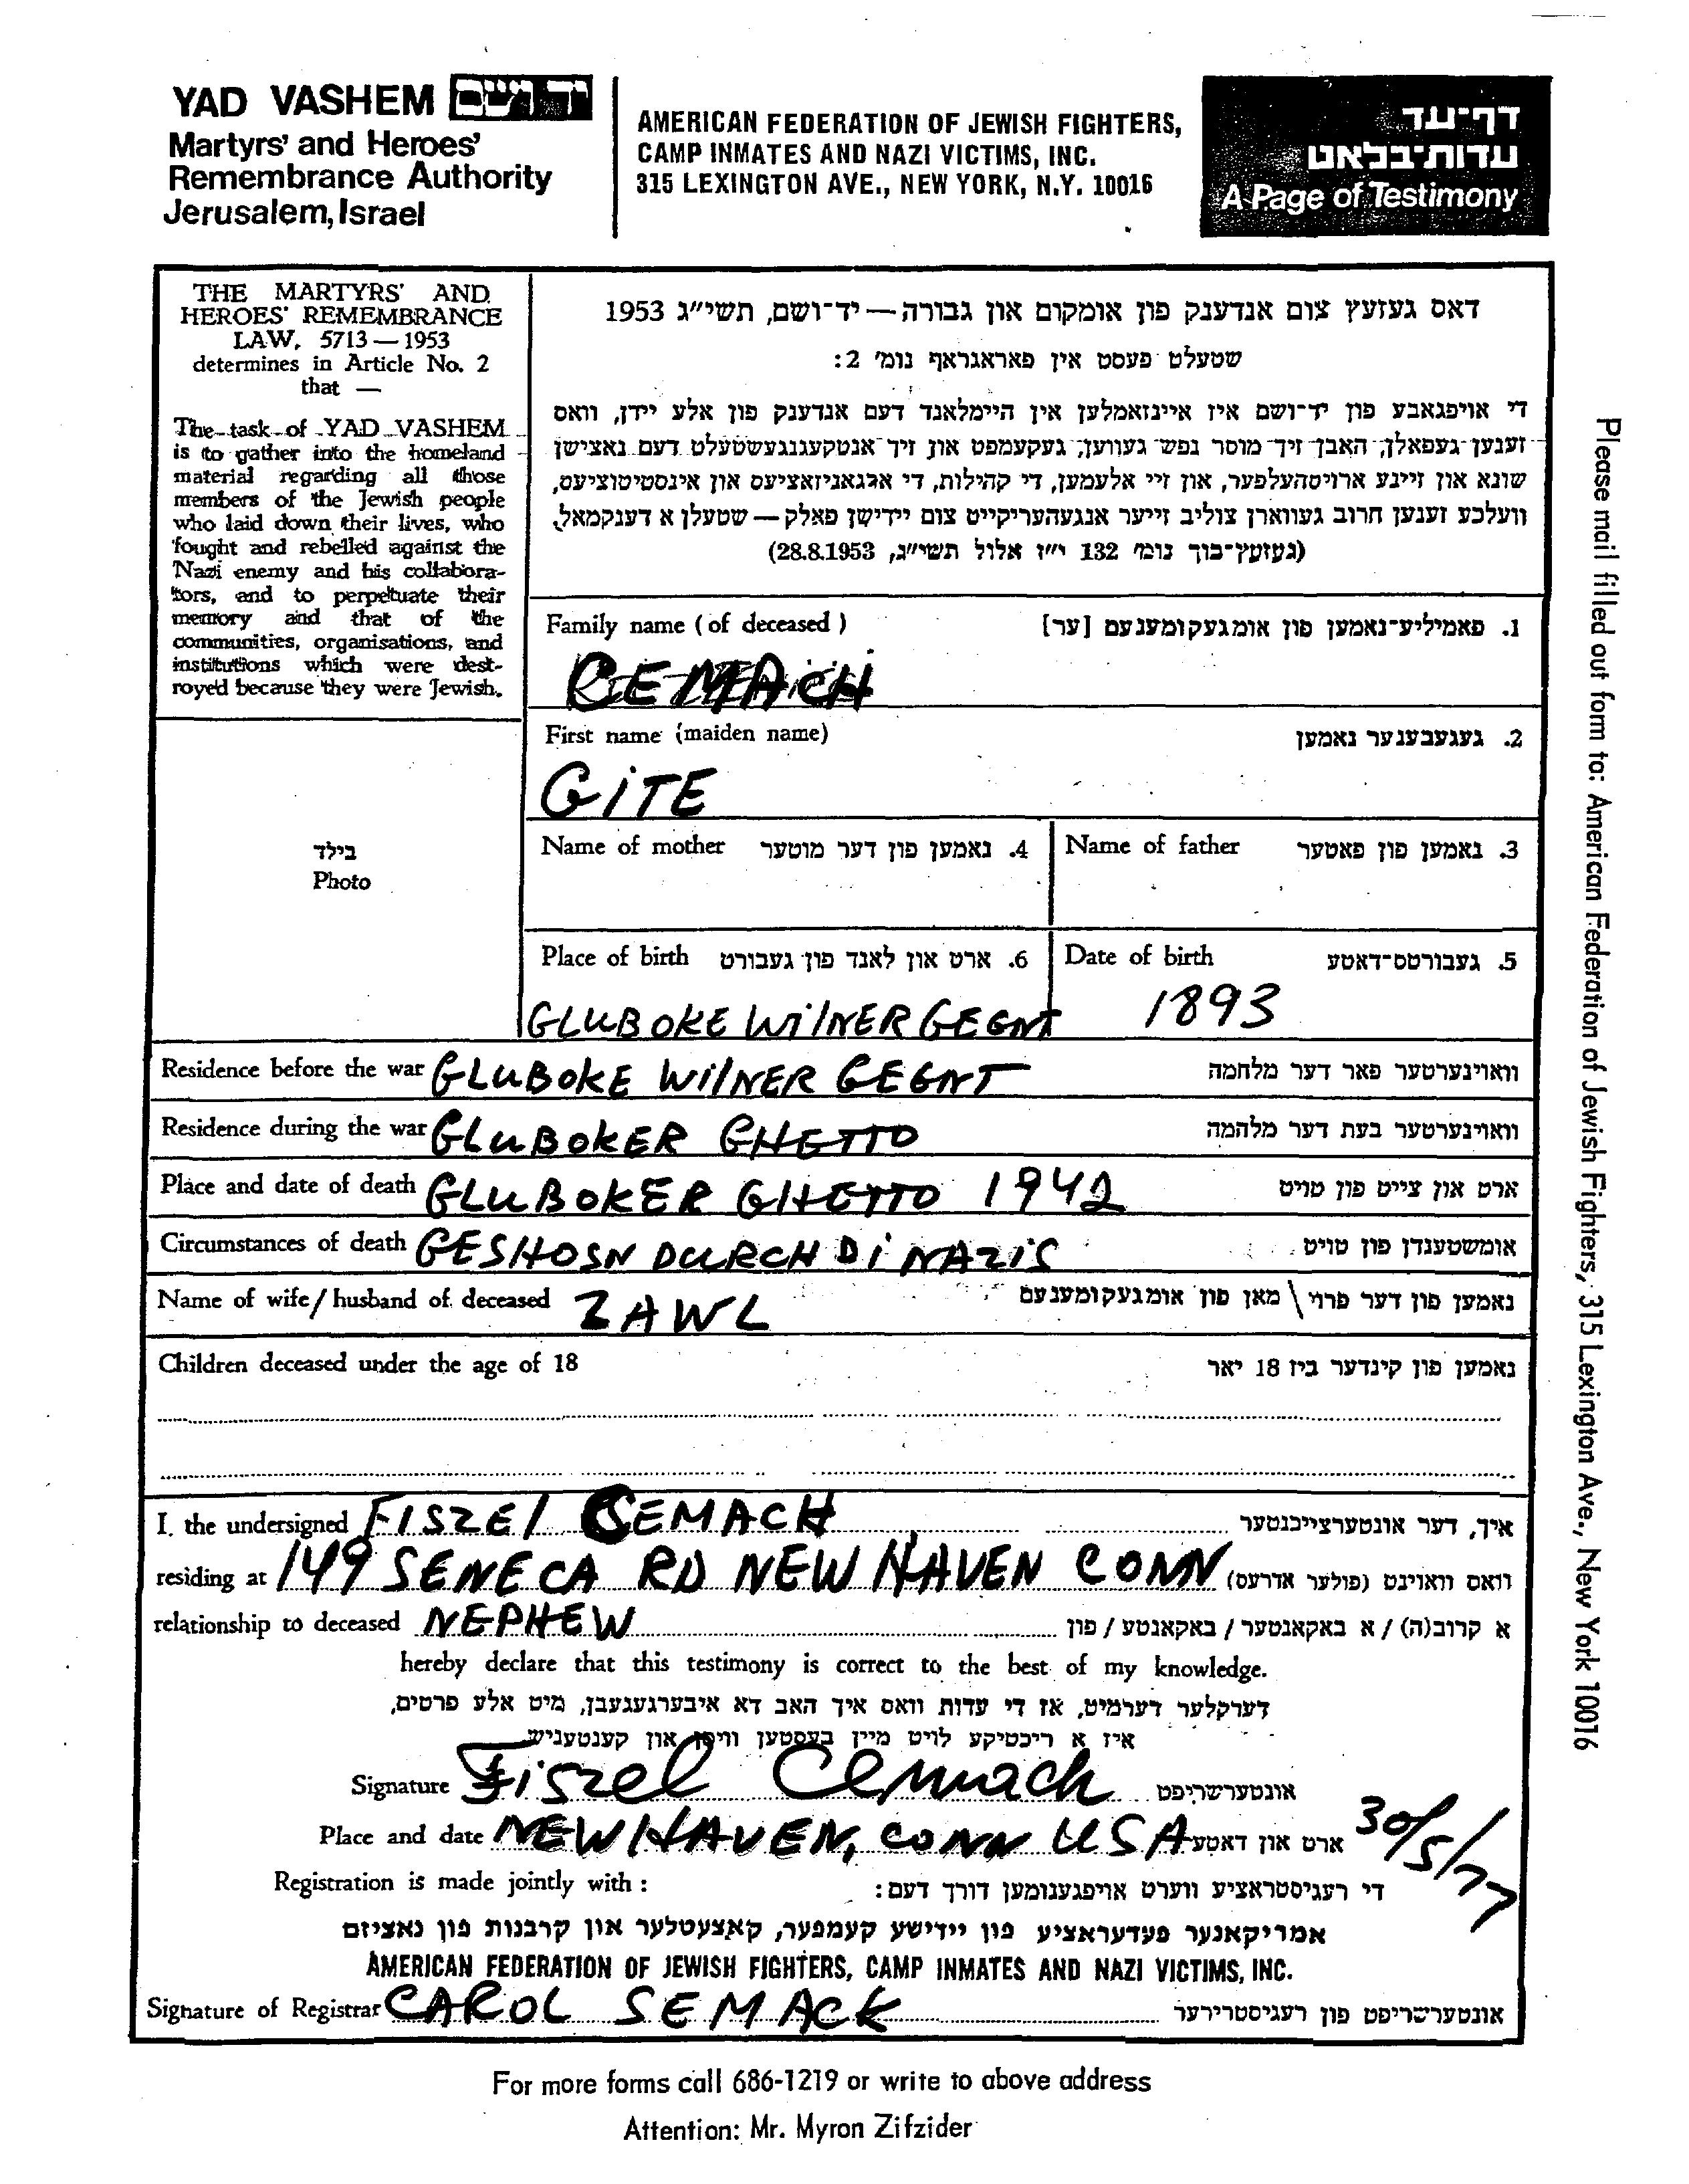 YAD VASHEM יד ושם
Martyrs' and Heroes'
Remembrance Authority
Jerusalem, Israel
AMERICAN FEDERATION OF JEWISH FIGHTERS,
CAMP INMATES AND NAZI VICTIMS, INC.
315 LEXINGTON AVE., NEW YORK, N.Y. 10016
דף-עד
עדות-בלאט
A Page of Testimony
THE MARTYRS' AND
HEROES' REMEMBRANCE
LAW, 5713 — 1953
determines in Article No. 2
that —
The task of YAD VASHEM
is to gather into the homeland
material regarding all those
members of the Jewish people
who laid down their lives, who
fought and rebelled against the
Nazi enemy and his collabora-
tors, and to perpetuate their
memory and that of the
communities, organisations, and
institutions which were dest-
royed because they were Jewish.
דאס געזעץ צום אנדענק פון אומקום און גבורה — יד-ושם, תשי"ג 1953
שטעלט פעסט אין פאראגראף נומ' 2:
די אויפגאבע פון יד-ושם איז איינזאמלען אין היימלאנד דעם אנדענק פון אלע יידן, וואס
זענען געפאלן, האבן זיך מוסר נפש געווען, געקעמפט און זיך אנטקעגנגעשטעלט דעם נאצישן
שונא און זיינע ארויסהעלפער, און זיי אלעמען, די קהילות, די ארגאניזאציעס און אינסטיטוציעס,
וועלכע זענען חרוב געווארן צוליב זייער אנגעהעריקייט צום יידישן פאלק — שטעלן א דענקמאל.
(געזעץ-בוך נומ' 132 י"ז אלול תשי"ג, 28.8.1953)
Family name (of deceased) 1. פאמיליע-נאמען פון אומגעקומענעם [ער]
CEMACH
First name (maiden name) 2. געגעבענער נאמען
GITE
בילד
Photo
Name of mother 4. נאמען פון דער מוטער Name of father 3. נאמען פון פאטער
Place of birth 6. ארט און לאנד פון געבורט Date of birth 5. געבורטס-דאטע
GLUBOKE WILNER GEGNT 1893
Residence before the war GLUBOKE WILNER GEGNT וואוינערטער פאר דער מלחמה
Residence during the war GLUBOKER GHETTO וואוינערטער בעת דער מלחמה
Place and date of death GLUBOKER GHETTO 1942 ארט און צייט פון טויט
Circumstances of death GESHOSN DURCH Di NAZIS אומשטענדן פון טויט
Name of wife/husband of deceased ZAWL נאמען פון דער פרוי \ מאן פון אומגעקומענעם
Children deceased under the age of 18 נאמען פון קינדער ביז 18 יאר
I, the undersigned FISZEL CEMACH איך, דער אונטערצייכנטער
residing at 149 SENECA RD NEW HAVEN CONN וואס וואוינט (פולער אדרעס)
relationship to deceased NEPHEW א קרוב(ה) / א באקאנטער / באקאנטע / פון
hereby declare that this testimony is correct to the best of my knowledge.
דערקלער דערמיט, אז די עדות וואס איך האב דא איבערגעגעבן, מיט אלע פרטים,
איז א ריכטיקע לויט מיין בעסטען וויסן און קענטעניש.
Signature Fiszel Cemach אונטערשריפט
Place and date NEW HAVEN, CONN USA ארט און דאטע 30/5/77
Registration is made jointly with : די רעגיסטראציע ווערט אויפגענומען דורך דעם:
אמריקאנער פעדעראציע פון יידישע קעמפער, קאצעטלער און קרבנות פון נאציזם
AMERICAN FEDERATION OF JEWISH FIGHTERS, CAMP INMATES AND NAZI VICTIMS, INC.
Signature of Registrar CAROL SEMACK אונטערשריפט פון רעגיסטרירער
For more forms call 686-1219 or write to above address
Attention: Mr. Myron Zifzider
Please mail filled out form to: American Federation of Jewish Fighters, 315 Lexington Ave., New York 10016